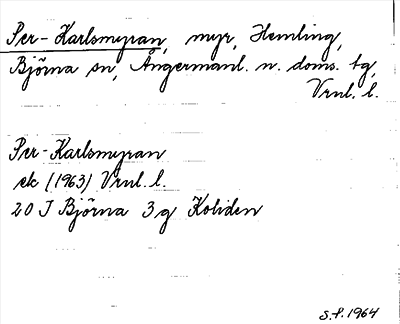 Per-Karlsmyran, myr, Hemling,
Björna sn, Ångermanl. n. doms. tg,
Vrnl. l.
Per-Karlsmyran
ek (1963) Vrnl. l.
20 I Björna 3g Koliden
S.F. 1964